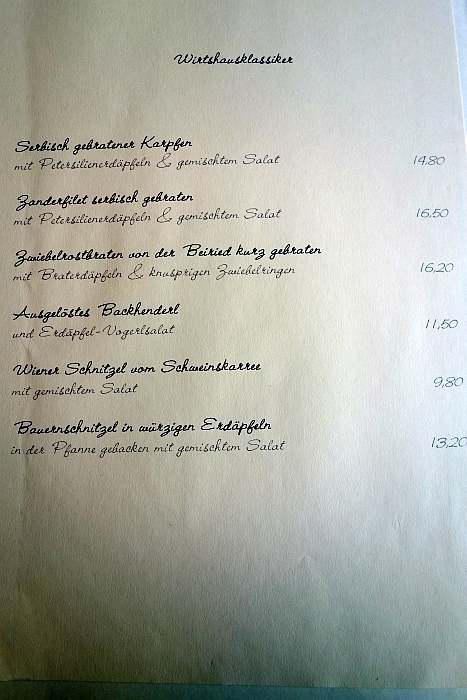 Wirtshausklassiker
Serbisch gebratener Karpfen
mit Petersilienerdäpfeln & gemischtem Salat 14,80
Zanderfilet serbisch gebraten
mit Petersilienerdäpfeln & gemischtem Salat 16,50
Zwiebelrostbraten von der Beiried kurz gebraten
mit Braterdäpfeln & knusprigen Zwiebelringen 16,20
Ausgelöstes Backhenderl
und Erdäpfel-Vogerlsalat 11,50
Wiener Schnitzel vom Schweinskarree
mit gemischtem Salat 9,80
Bauernschnitzel in würzigen Erdäpfeln
in der Pfanne gebacken mit gemischtem Salat 13,20